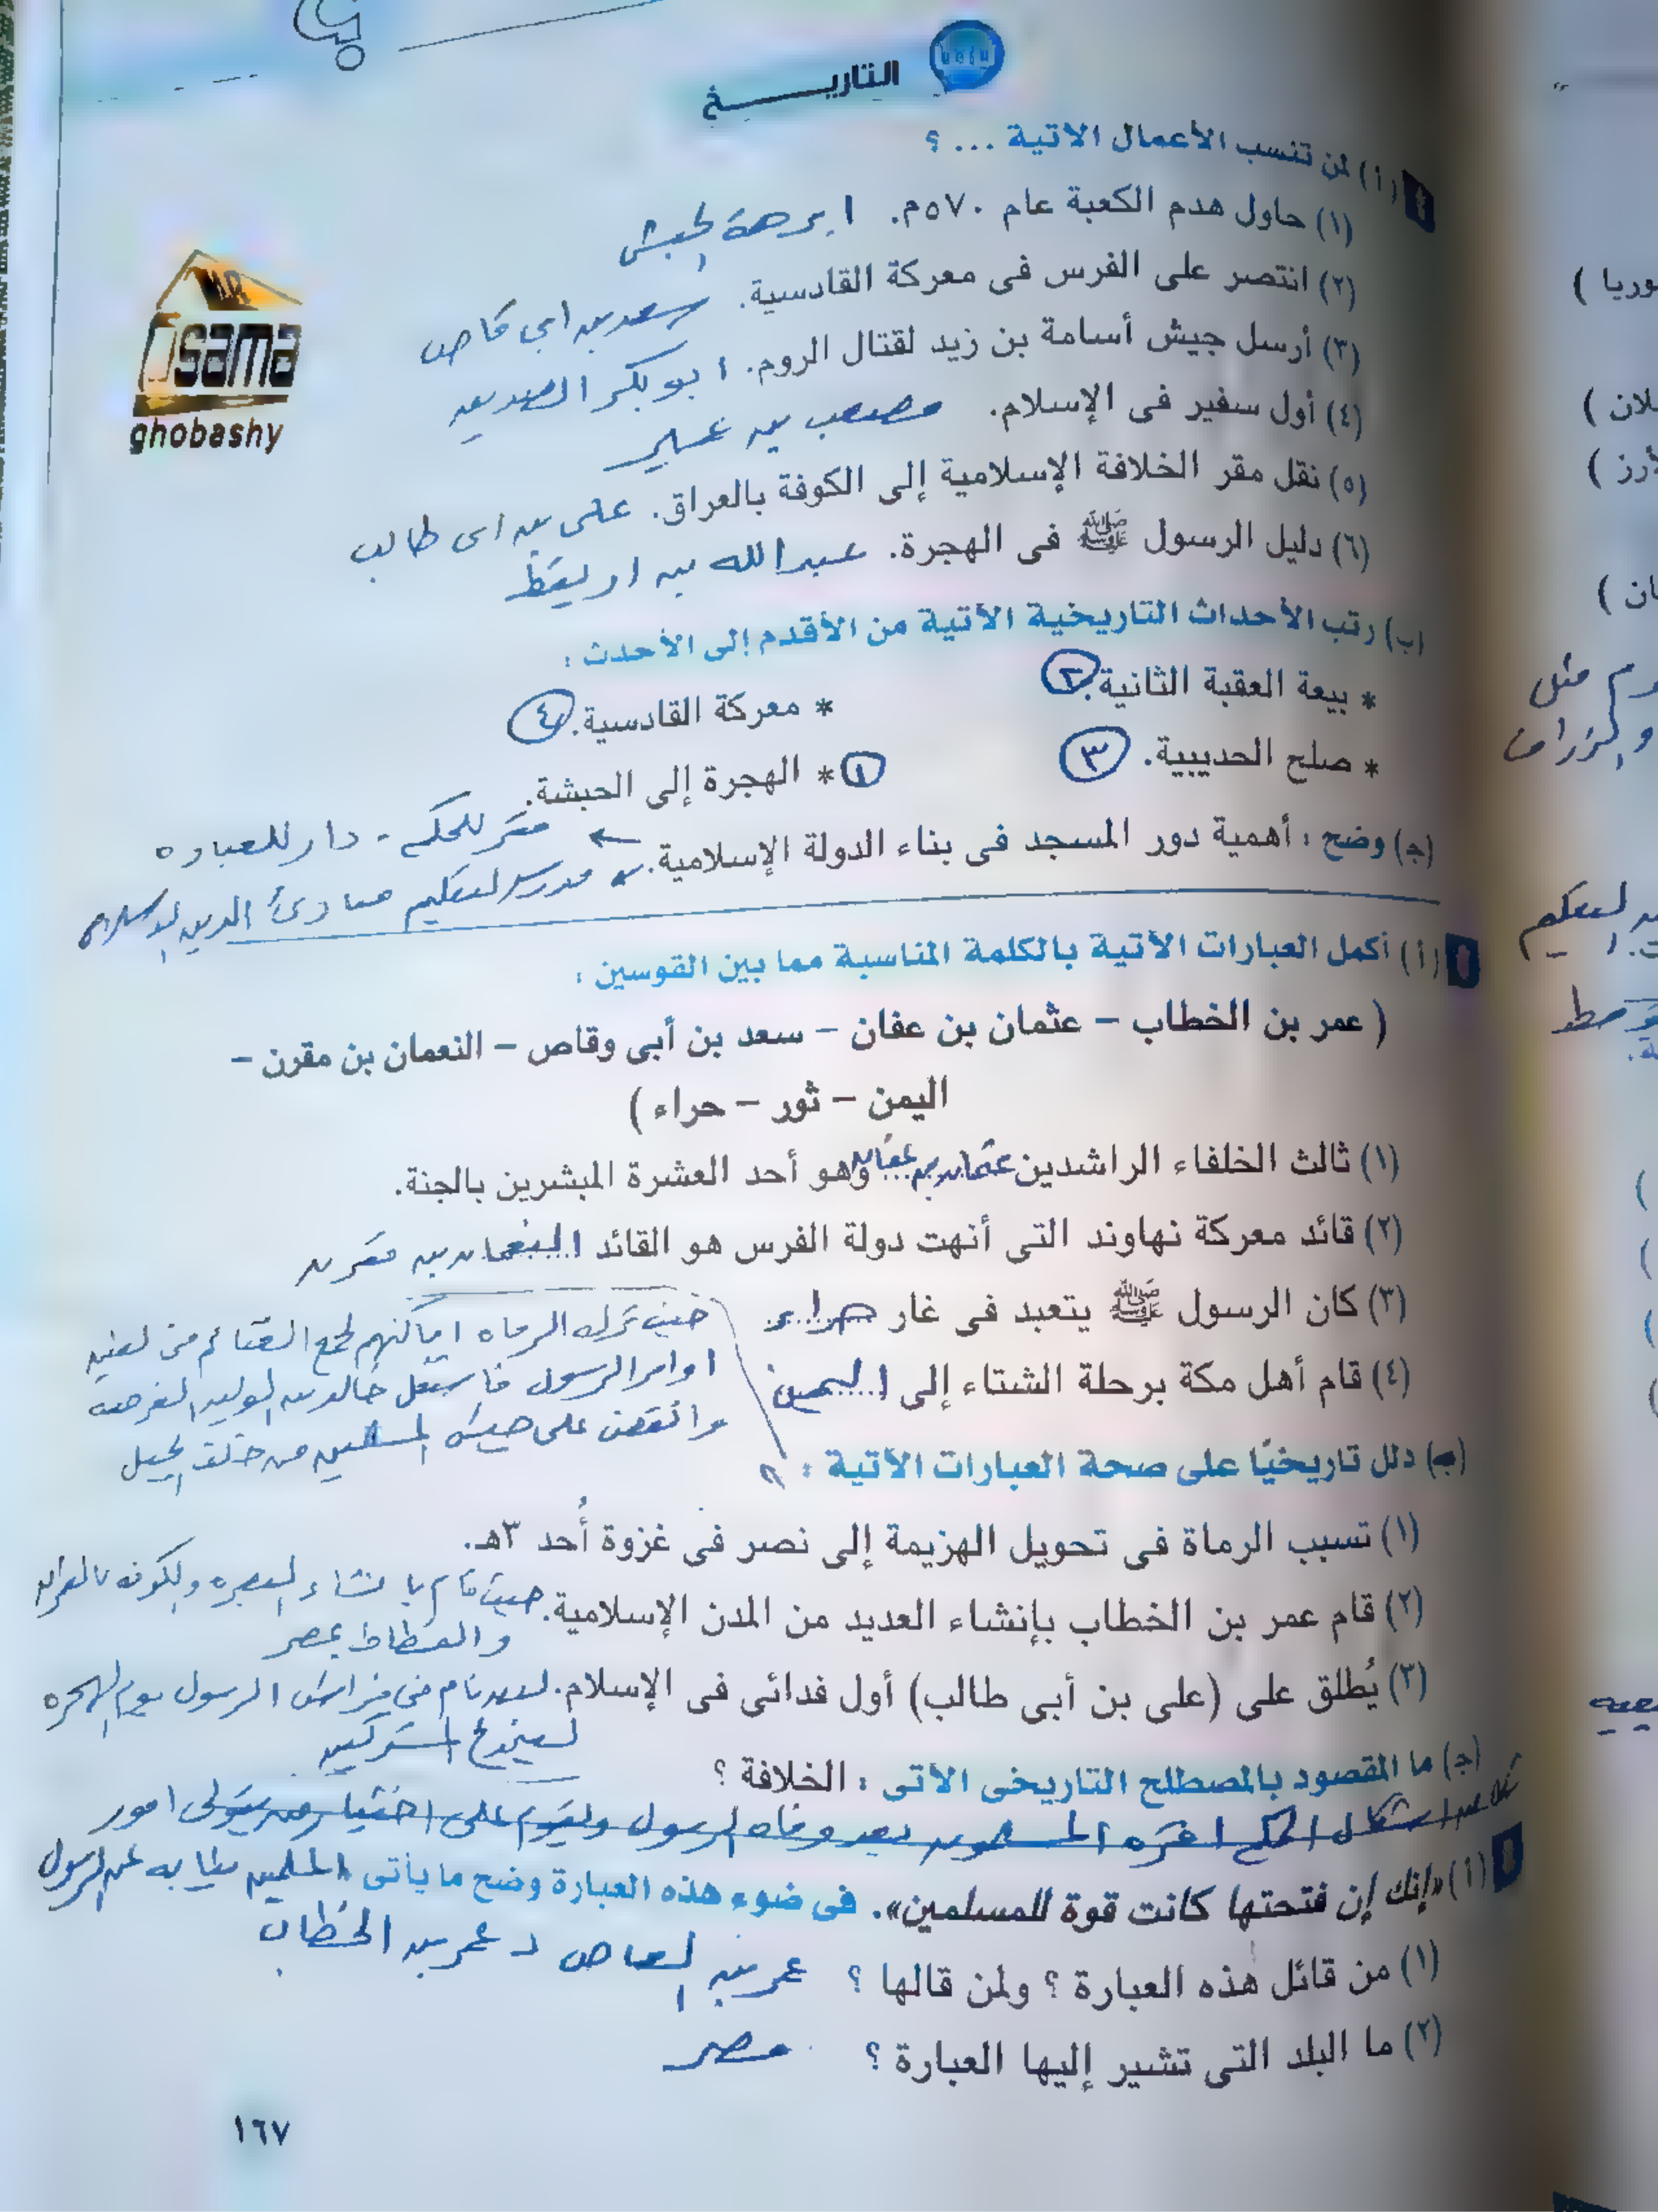 التاريــــخ
(أ) لمن تنسب الأعمال الآتية ... ؟
(١) حاول هدم الكعبة عام ٥٧٠م. ابرهة الحبشى
(٢) انتصر على الفرس فى معركة القادسية. سعد بن ابى وقاص
(٣) أرسل جيش أسامة بن زيد لقتال الروم. ابو بكر الصديق
(٤) أول سفير فى الإسلام. مصعب بن عمير
(٥) نقل مقر الخلافة الإسلامية إلى الكوفة بالعراق. على بن ابى طالب
(٦) دليل الرسول ﷺ فى الهجرة. عبد الله بن اريقط
(ب) رتب الأحداث التاريخية الآتية من الأقدم إلى الأحدث :
* بيعة العقبة الثانية. ٢ * معركة القادسية. ٤
* صلح الحديبية. ٣ * الهجرة إلى الحبشة. ١
(ج) وضح : أهمية دور المسجد فى بناء الدولة الإسلامية. مقر للحكم - دار للعباده
مدرسه لتعليم مبادئ الدين الاسلامى
(أ) أكمل العبارات الآتية بالكلمة المناسبة مما بين القوسين :
( عمر بن الخطاب – عثمان بن عفان – سعد بن أبى وقاص – النعمان بن مقرن –
اليمن – ثور – حراء )
(١) ثالث الخلفاء الراشدين عثمان بن عفان وهو أحد العشرة المبشرين بالجنة.
(٢) قائد معركة نهاوند التى أنهت دولة الفرس هو القائد النعمان بن مقرن
(٣) كان الرسول ﷺ يتعبد فى غار حراء
(٤) قام أهل مكة برحلة الشتاء إلى اليمن
(ب) دلل تاريخيًا على صحة العبارات الآتية :
حيث ترك الرماه اماكنهم لجمع الغنائم
اوامر الرسول فاستغل خالد بن الوليد الفرصه
وانقض على جيش المسلمين من خلف الجبل
(١) تسبب الرماة فى تحويل الهزيمة إلى نصر فى غزوة أُحد ٣هـ.
(٢) قام عمر بن الخطاب بإنشاء العديد من المدن الإسلامية. حيث قام بانشاء البصره والكوفه بالعراق
والفسطاط بمصر
(٣) يُطلق على (على بن أبى طالب) أول فدائى فى الإسلام. نام فى فراش الرسول يوم الهجره
ليخدع المشركين
(ج) ما المقصود بالمصطلح التاريخى الآتى : الخلافة ؟
شكل من اشكال الحكم اقره المسلمون بعد وفاه الرسول ويقوم على اختيار من يتولى امور
المسلمين نيابه عن الرسول
(أ) «إنك إن فتحتها كانت قوة للمسلمين». فى ضوء هذه العبارة وضح ما يأتى
(١) من قائل هذه العبارة ؟ ولمن قالها ؟ عمر بن العاص لـ عمر بن الخطاب
(٢) ما البلد التى تشير إليها العبارة ؟ مصر
١٦٧
OSAMA
ghobashy